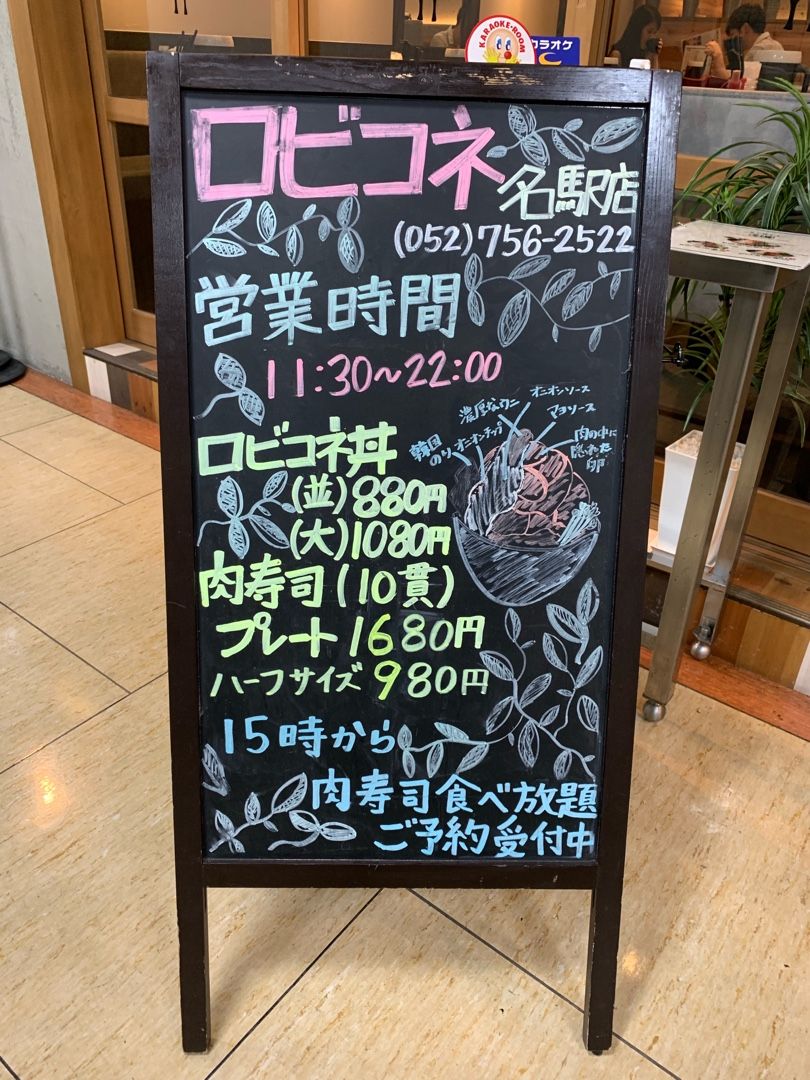 KARAOKE・ROOM
カラオケ
ロビコネ
名駅店
(052)756-2522
営業時間
11:30～22:00
オニオンソース
濃厚なウニ
マヨソース
韓国
のり
オニオンチップ
肉の中に
隠れた
卵
ロビコネ丼
(並)880円
(大)1080円
肉寿司(10貫)
プレート1680円
ハーフサイズ980円
15時から
肉寿司食べ放題
ご予約受付中